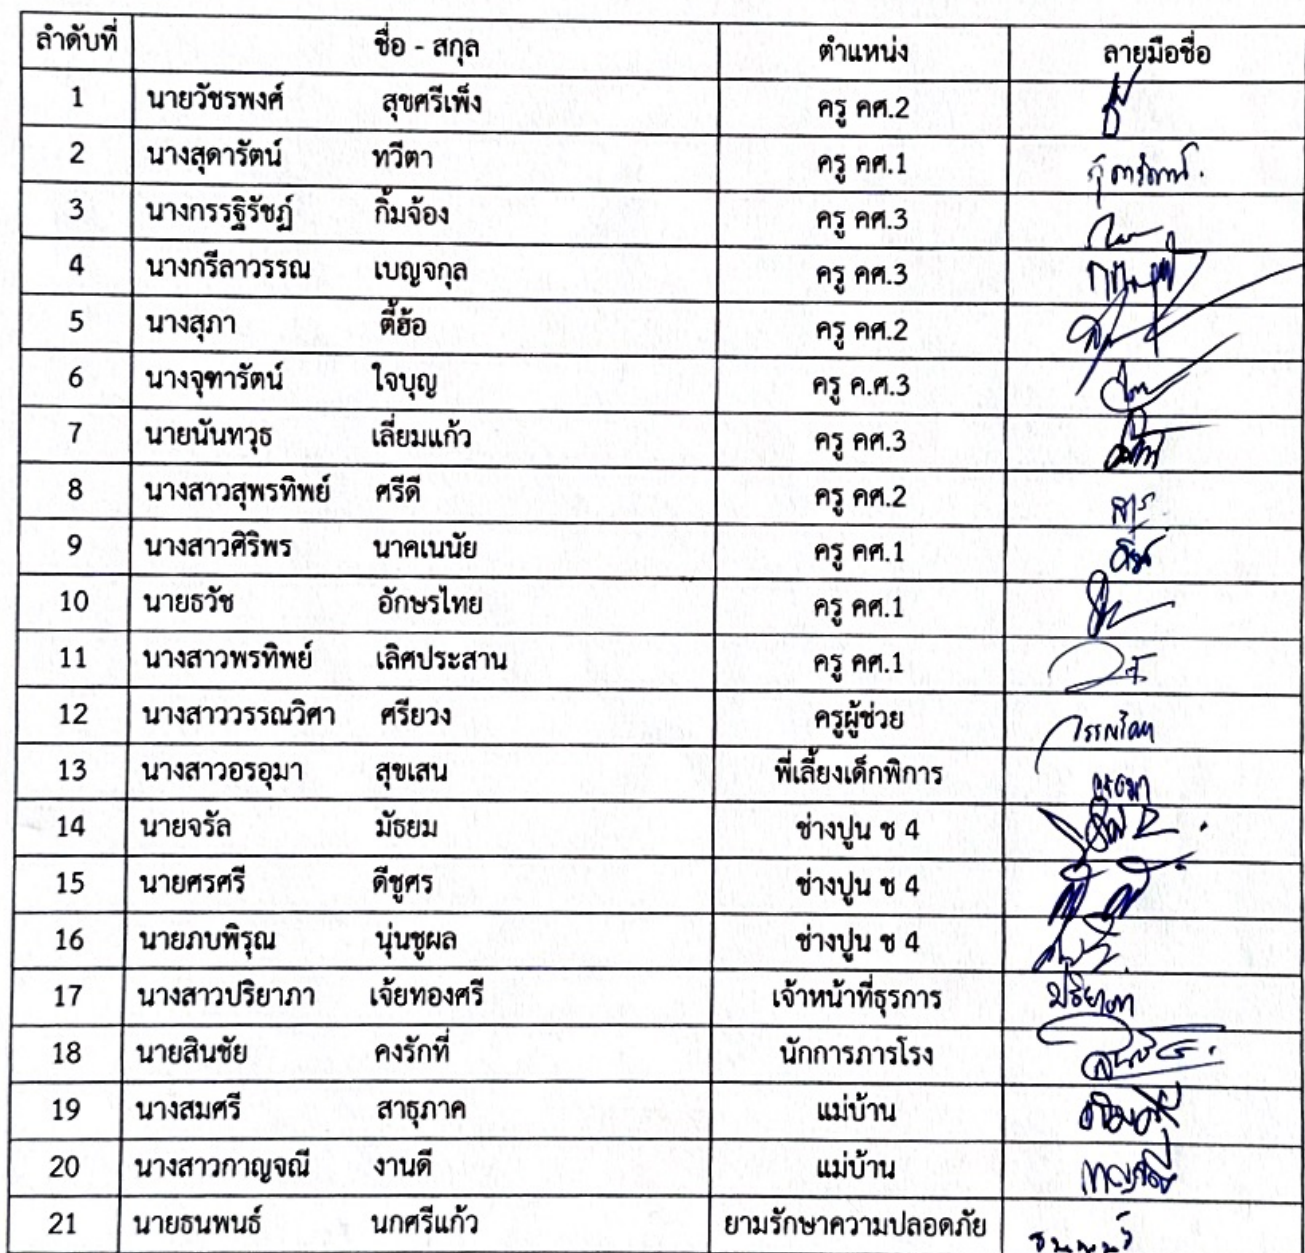 ลำดับที่ ชื่อ - สกุล ตำแหน่ง ลายมือชื่อ
1 นายวัชรพงศ์ สุขศรีเพ็ง ครู คศ.2
2 นางสุดารัตน์ ทวีตา ครู คศ.1 สุดารัตน์.
3 นางกรรฐิรัชฏ์ กิ้มจ้อง ครู คศ.3
4 นางกรีลาวรรณ เบญจกุล ครู คศ.3
5 นางสุภา ตี้ฮ้อ ครู คศ.2
6 นางจุฑารัตน์ ใจบุญ ครู ค.ศ.3
7 นายนันทวุธ เลี่ยมแก้ว ครู คศ.3
8 นางสาวสุพรทิพย์ ศรีดี ครู คศ.2
9 นางสาวศิริพร นาคเนนัย ครู คศ.1
10 นายธวัช อักษรไทย ครู คศ.1
11 นางสาวพรทิพย์ เลิศประสาน ครู คศ.1
12 นางสาววรรณวิศา ศรียวง ครูผู้ช่วย วรรณวิศา
13 นางสาวอรอุมา สุขเสน พี่เลี้ยงเด็กพิการ อรอุมา
14 นายจรัล มัธยม ช่างปูน ช 4
15 นายศรศรี ดีชูศร ช่างปูน ช 4
16 นายภบพิรุณ นุ่นชูผล ช่างปูน ช 4
17 นางสาวปริยาภา เจ้ยทองศรี เจ้าหน้าที่ธุรการ ปริยาภา
18 นายสินชัย คงรักที่ นักการภารโรง
19 นางสมศรี สาธุภาค แม่บ้าน สมศรี
20 นางสาวกาญจณี งานดี แม่บ้าน กาญจณี
21 นายธนพนธ์ นกศรีแก้ว ยามรักษาความปลอดภัย ธนพนธ์